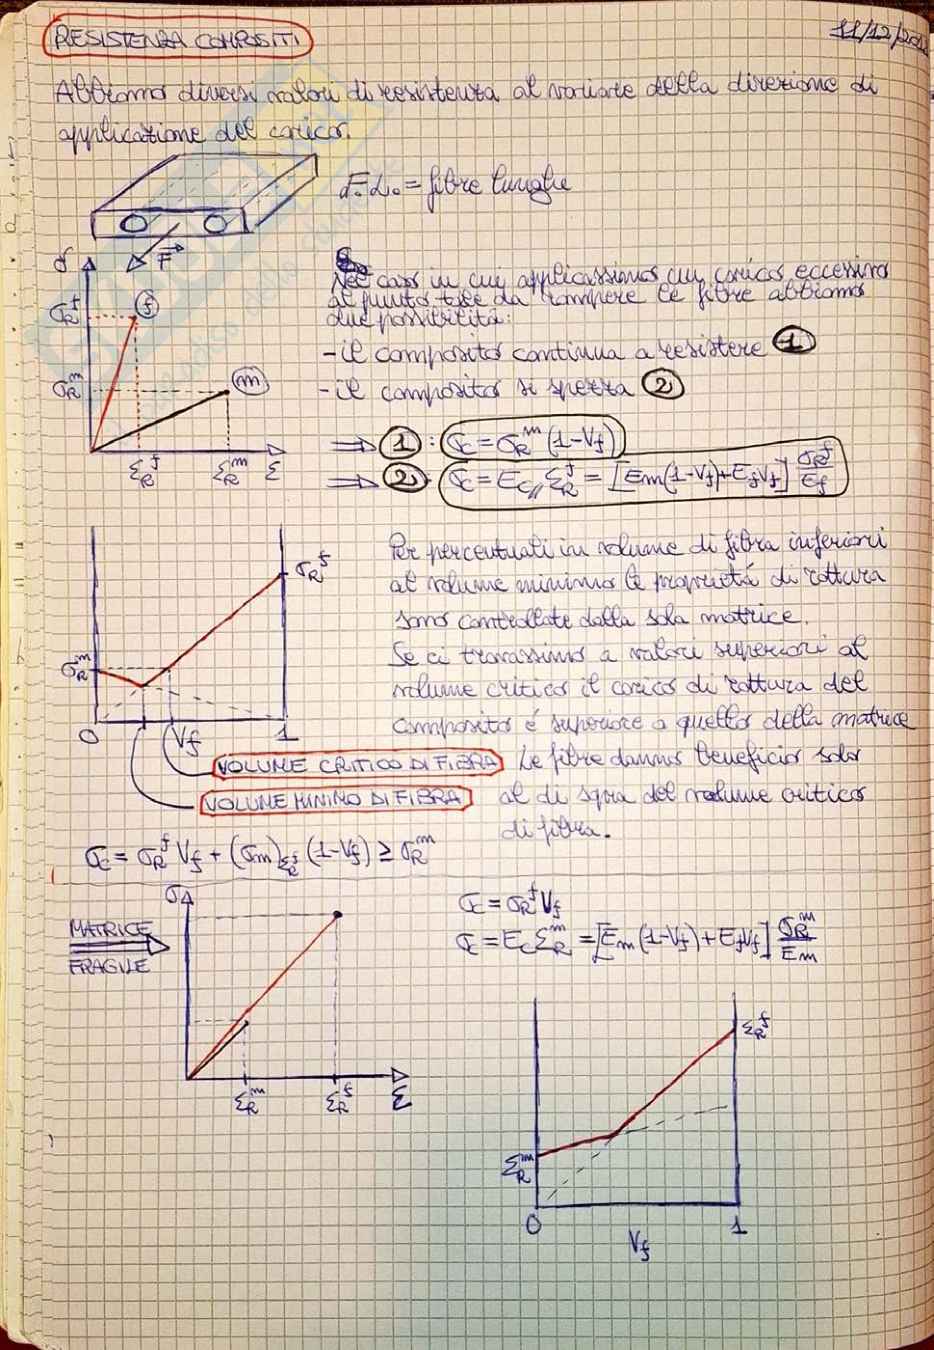 RESISTENZA COMPOSITI
11/12/20
Abbiamo diversi valori di resistenza al variare della direzione di
applicazione del carico.
F.L. = fibre lunghe
F
σ
σ_R^f
f
σ_R^m
m
ε_R^f ε_R^m ε
Nel caso in cui applicassimo un carico eccessivo
al punto tale da rompere le fibre abbiamo
due possibilità:
- il composito continua a resistere 1
- il composito si spezza 2
⇒ 1 : σ_c = σ_R^m (1-V_f)
⇒ 2 : σ_c = E_c// ε_R^f = [E_m(1-V_f)+E_f V_f] σ_R^f / E_f
σ_R^f
σ_R^m
0 V_f 1
Per percentuali in volume di fibra inferiori
al volume minimo le proprietà di rottura
sono controllate dalla sola matrice.
Se ci trovassimo a valori superiori al
volume critico il carico di rottura del
composito é superiore a quello della matrice
VOLUME CRITICO DI FIBRA
Le fibre danno beneficio solo
VOLUME MINIMO DI FIBRA
al di sopra del volume critico
di fibra.
σ_c = σ_R^f V_f + (σ_m)_{ε_R^f} (1-V_f) ≥ σ_R^m
MATRICE
FRAGILE
σ
ε_R^m ε_R^f ε
σ_c = σ_R^f V_f
σ_c = E_c ε_R^m = [E_m (1-V_f) + E_f V_f] σ_R^m / E_m
ε_R^f
ε_R^m
0 V_f 1